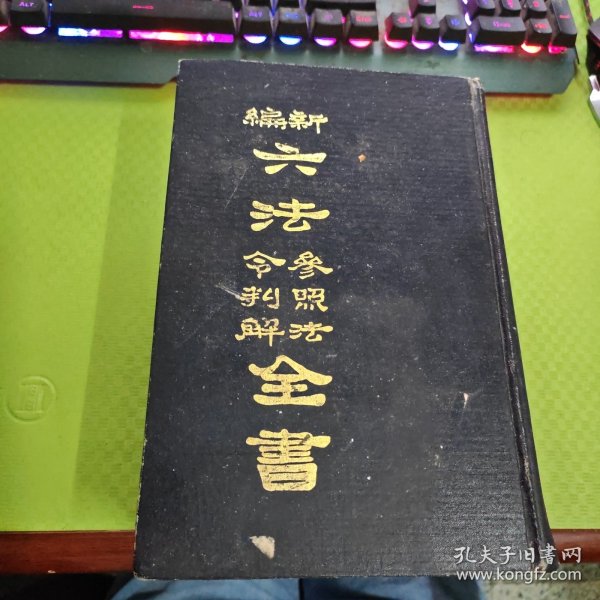 新編
六法
參照法
令判解
全書
孔夫子旧書网
www.kongfz.com
ALT